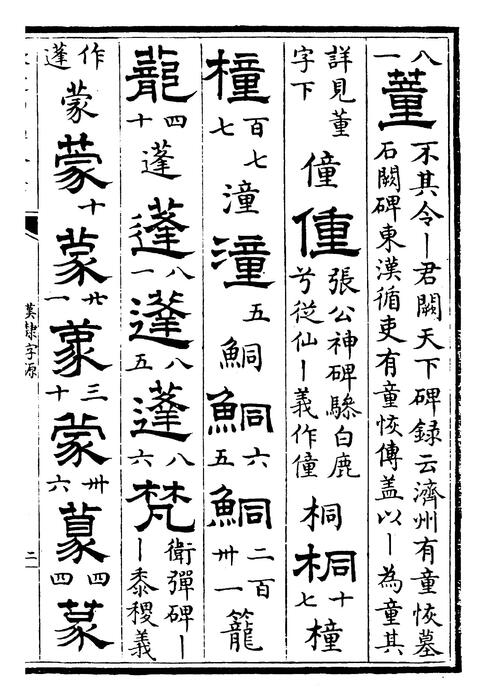 八一董不其令丨君闕天下碑録云濟州有童恢墓
石闕碑東漢循吏有童恢傳盖以丨為童其
詳見董字下僮僮張公神碑驂白鹿
兮從仙丨義作僮桐桐十七橦
橦百七七潼潼五鮦鮦六五鮦二百卅一籠
蘢四十蓬蓬八一蓬八五蓬八六梵衛彈碑丨
丨黍稷義
作蓬蒙蒙十蒙廿一蒙三十蒙卅六蒙四四蒙
漢隸字源
二